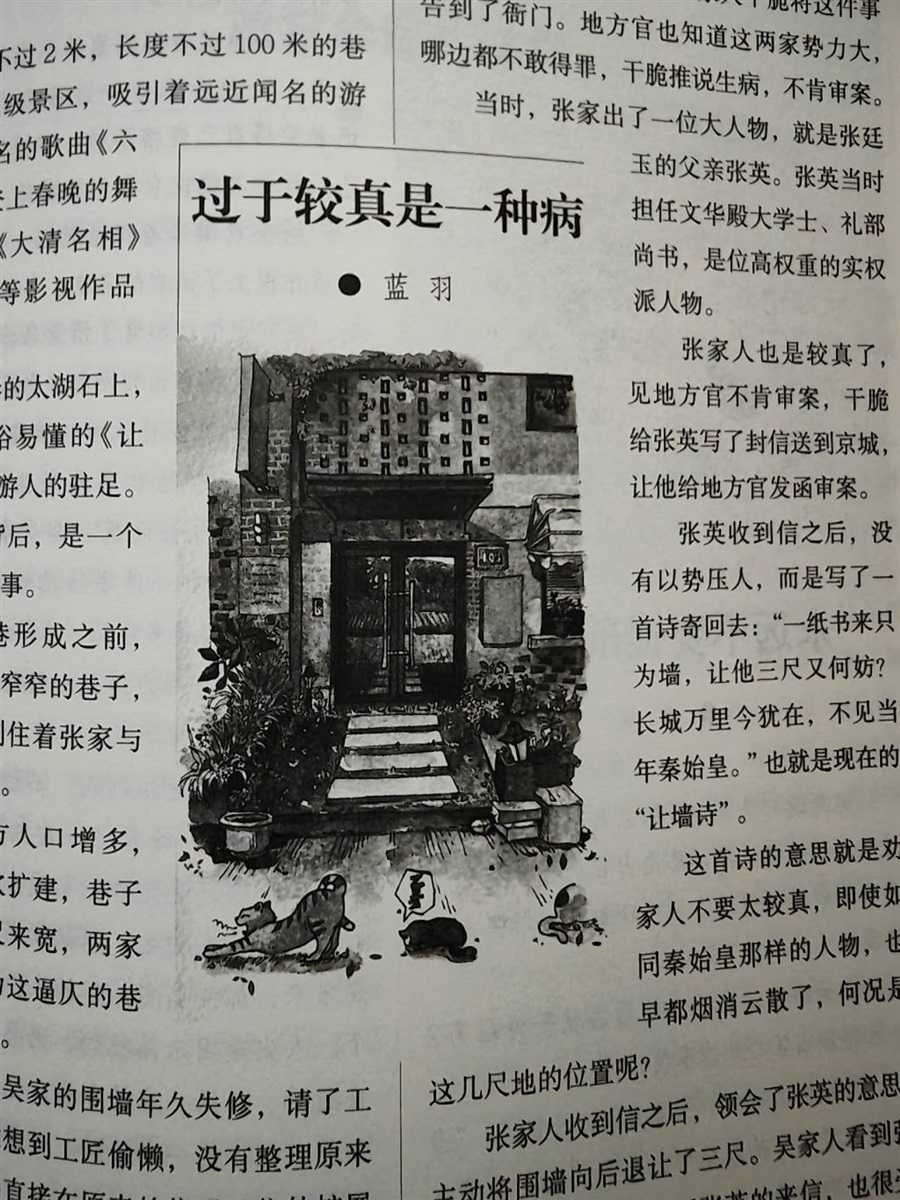 过于较真是一种病
● 蓝 羽
不过2米，长度不过100米的巷
级景区，吸引着远近闻名的游
名的歌曲《六
上春晚的舞
《大清名相》
等影视作品
的太湖石上，
俗易懂的《让
游人的驻足。
背后，是一个
事。
巷形成之前，
窄窄的巷子，
住着张家与
。
人口增多，
扩建，巷子
尺来宽，两家
这逼仄的巷
。
吴家的围墙年久失修，请了工
想到工匠偷懒，没有整理原来
脆将这件事
告到了衙门。地方官也知道这两家势力大，
哪边都不敢得罪，干脆推说生病，不肯审案。
当时，张家出了一位大人物，就是张廷
玉的父亲张英。张英当时
担任文华殿大学士、礼部
尚书，是位高权重的实权
派人物。
张家人也是较真了，
见地方官不肯审案，干脆
给张英写了封信送到京城，
让他给地方官发函审案。
张英收到信之后，没
有以势压人，而是写了一
首诗寄回去：“一纸书来只
为墙，让他三尺又何妨？
长城万里今犹在，不见当
年秦始皇。”也就是现在的
“让墙诗”。
这首诗的意思就是劝
家人不要太较真，即使如
同秦始皇那样的人物，也
早都烟消云散了，何况是
这几尺地的位置呢？
张家人收到信之后，领会了张英的意思
主动将围墙向后退让了三尺。吴家人看到张
张英的来信，也很